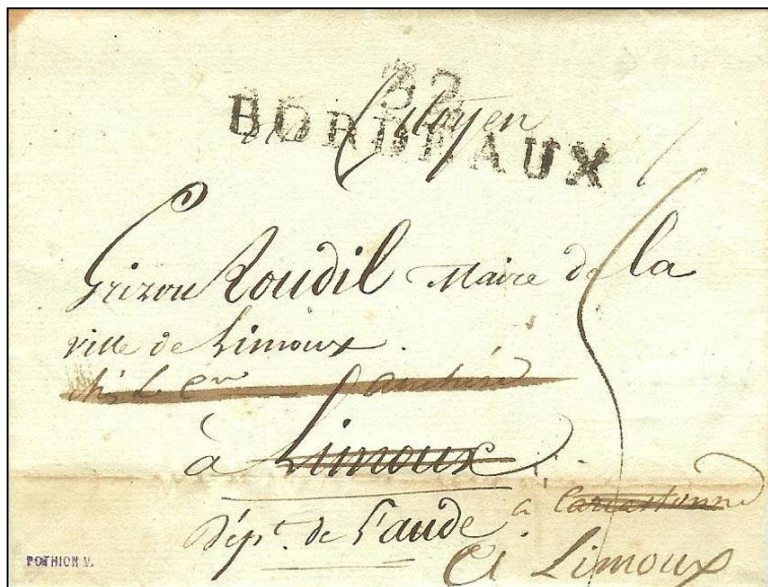 32
BORDEAUX
Citoyen
Grizou Roudil Maire de la
ville de Limoux.
chez le
à Limoux
Dépt. de l'aude
à Carcassonne
à Limoux
POTHION V.